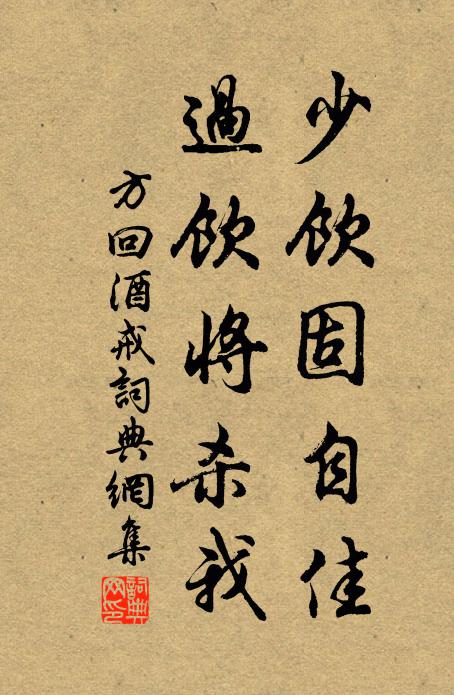 少飲固自佳
過飲將杀我
方回酒戒詞典網集
詞典网印